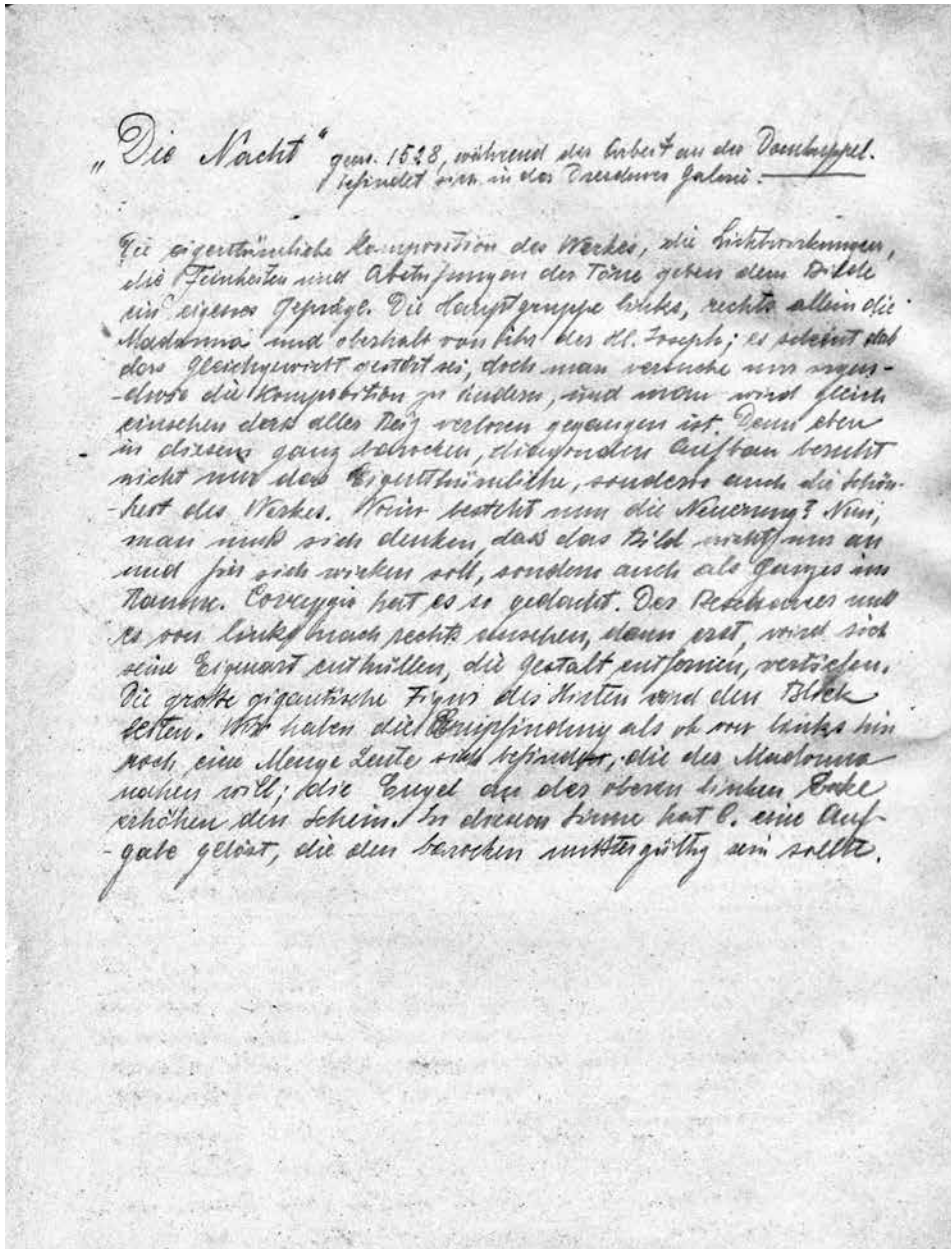 „Die Nacht“ gem. 1528, während der Arbeit an der Domkuppel.
befindet sich in der Dresdener Galerie.
Die eigenthümliche Komposition des Werkes, die Lichtwirkungen,
die Feinheiten und Abstufungen der Töne geben dem Bilde
ein eigenes Gepräge. Die Hauptgruppe links, rechts allein die
Madonna und oberhalb von ihr der Hl. Joseph; es scheint daß
das Gleichgewicht gestört sei, doch man versuche nur irgend-
-etwas die Komposition zu ändern, und man wird gleich
einsehen dass aller Reiz verloren gegangen ist. Denn eben
in diesem ganz barocken, Aufbau beruht
nicht nur das Eigenthümliche, sondern auch die Schön-
-heit des Werkes. Worin besteht nun die Neuerung? Nun,
man muß sich denken, daß das Bild nicht nur an
und für sich wirken soll, sondern auch als Ganzes im
Raume. Correggio hat es so gedacht. Der Beschauer muß
es von links nach rechts ansehen, dann erst, wird sich
seine Eigenart enthüllen, die Gestalt entfernen, vertiefen.
Die große gigantische Figur des Hirten wird den Blick
leiten. Wir haben die Empfindung als ob von links hin
noch eine Menge Leute sich befinde, die der Madonna
nahen will; die Engel an der oberen linken Ecke
erhöhen den Schein. In diesem Sinne hat C. eine Auf-
-gabe gelöst, die den barocken mustergültig sein sollte.